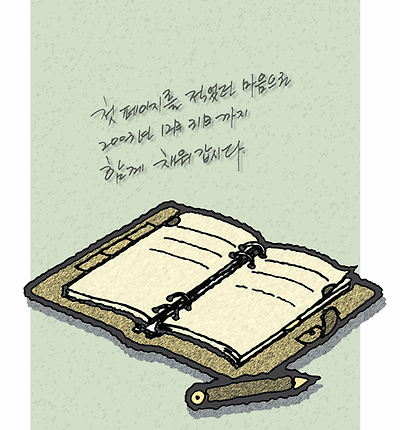 첫 페이지를 적었던 마음으로
2003년 12月 31日 까지
함께 채워 갑시다.